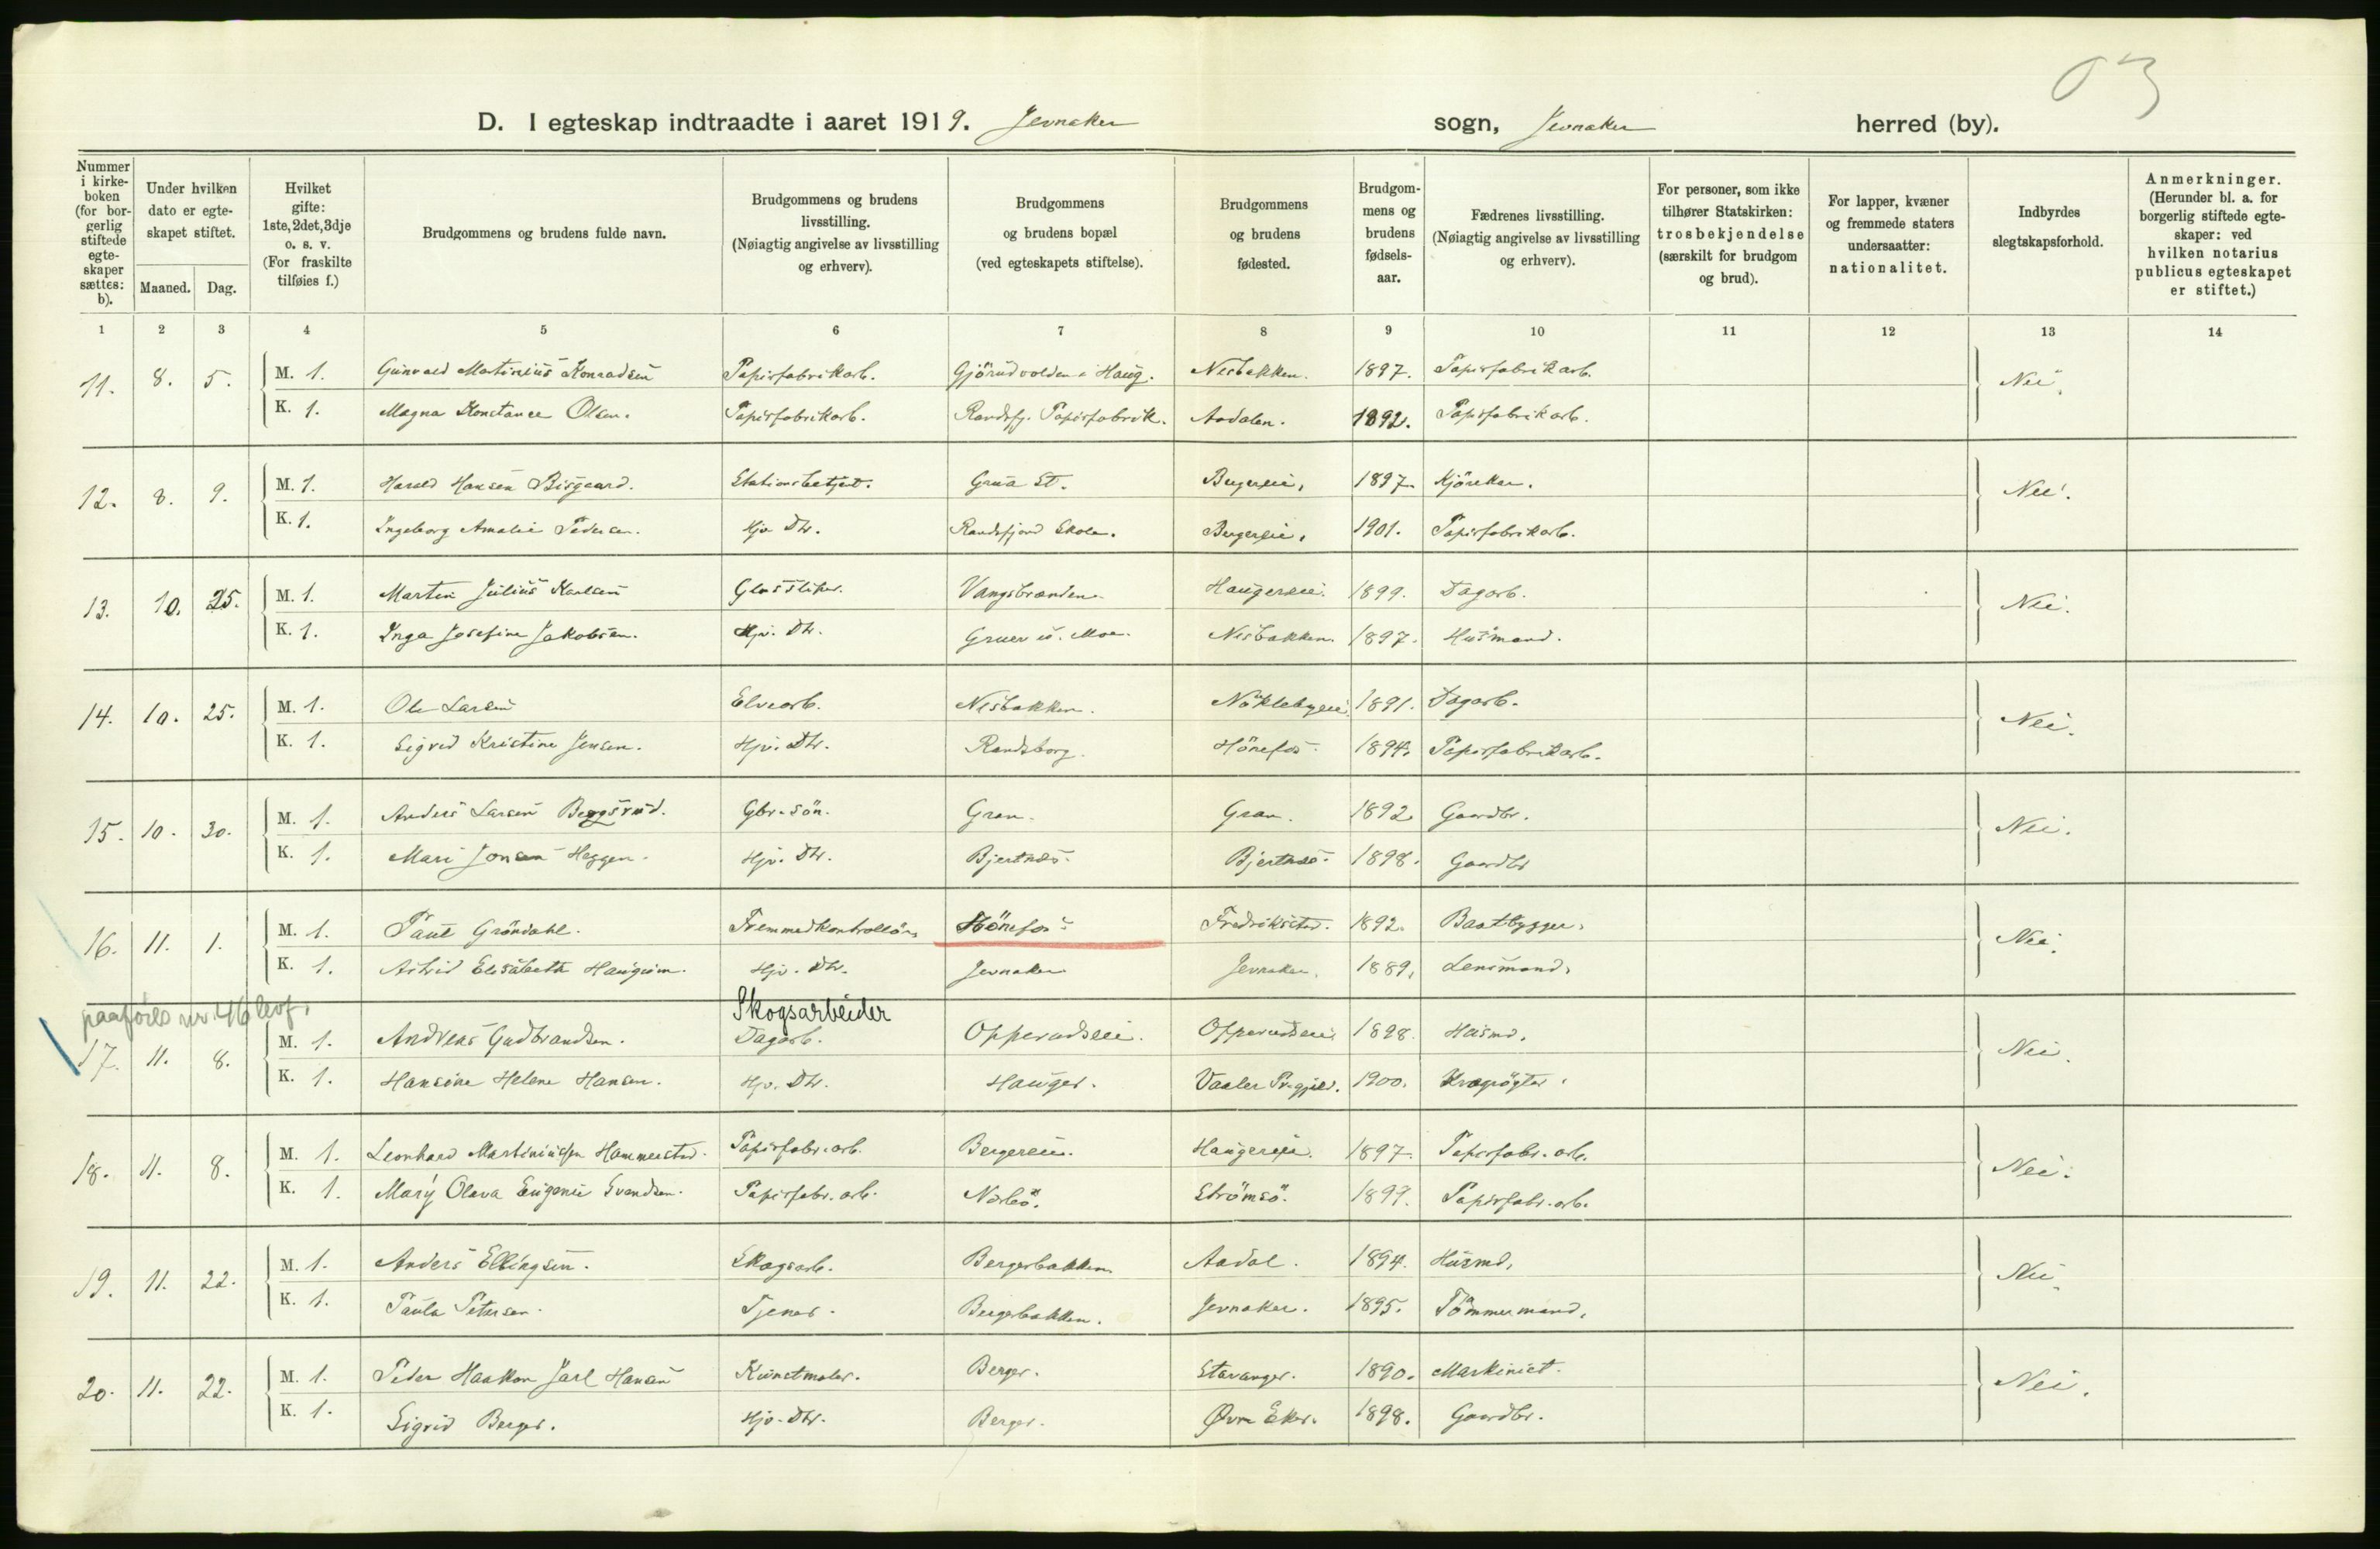 03
D. I egteskap indtraadte i aaret 1919. Jevnaker sogn, Jevnaker herred (by).
Nummer i kirke-boken (for bor-gerlig stiftede egte-skaper sættes: b).
Under hvilken dato er egte-skapet stiftet.
Maaned. Dag.
Hvilket gifte: 1ste, 2det, 3dje o. s. v. (For fraskilte tilføies f.)
Brudgommens og brudens fulde navn.
Brudgommens og brudens livsstilling. (Nøiagtig angivelse av livsstilling og erhverv).
Brudgommens og brudens bopæl (ved egteskapets stiftelse).
Brudgommens og brudens fødested.
Brudgom-mens og brudens fødsels-aar.
Fædrenes livsstilling. (Nøiagtig angivelse av livsstilling og erhverv).
For personer, som ikke tilhører Statskirken: trosbekjendelse (særskilt for brudgom og brud).
For lapper, kvæner og fremmede staters undersaatter: nationalitet.
Indbyrdes slegtskapsforhold.
Anmerkninger. (Herunder bl. a. for borgerlig stiftede egte-skaper: ved hvilken notarius publicus egteskapet er stiftet.)
1 2 3 4 5 6 7 8 9 10 11 12 13 14
11. 8. 5. M. 1. Gunvald Matinius Konradsen Papirfabrikarb. Gjörudvolden i Haug. Nesbakken. 1897. Papirfabrikarb. Nei.
K. 1. Magna Konstance Olsen. Papirfabrikarb. Randsfj. Papirfabrik. Aadalen. 1892. Papirfabrikarb.
12. 8. 9. M. 1. Harald Hansen Bisgaard. Stationsbetjent. Grua St. Bergereie, 1897. Kjöreker. Nei.
K. 1. Ingeborg Amalie Pedersen. Hjv. Dtr. Randsfjord Skole. Bergereie, 1901. Papirfabrikarb.
13. 10. 25. M. 1. Martin Julius Karlsen Glassliper. Vangsbraaden. Haugereie. 1899. Dagarb. Nei.
K. 1. Inga Josefine Jakobsen. Hjv. Dtr. Gruer u. Moe. Nesbakken 1897. Husmand.
14. 10. 25. M. 1. Ole Larsen Elvearb. Nesbakken. Nöklebyeie 1891. Dagarb. Nei.
K. 1. Sigrid Kristine Jensen. Hjv. Dtr. Randsborg. Hönefos. 1894. Papirfabrikarb.
15. 10. 30. M. 1. Anders Larsen Bergsrud. Gbr. sön. Gran. Gran. 1892. Gaardbr. Nei.
K. 1. Mari Jonsen Heggen. Hjv. Dtr. Bjertnæs. Bjertnæs. 1898. Gaardbr
16. 11. 1. M. 1. Paul Gröndahl. Fremmedkontrollör, Hönefos Fredrikstad. 1892. Baatbygger. Nei.
K. 1. Astrid Elisabeth Haugum. Hjv. Dtr. Jevnaker Jevnaker. 1889. Lensmand.
paaføres nr. 46 levf. Skogsarbeider
17. 11. 8. M. 1. Andreas Gudbrandsen. Dagarb. Opperudseie. Opperudseie 1898. Husmd. Nei.
K. 1. Hansine Helene Hansen. Hjv. Dtr. Hauger. Vaaler Prgjeld. 1900. Krøgögter.
18. 11. 8. M. 1. Leonhard Martiniussen Hammerstad. Papirfabr. arb. Bergereie. Haugereie. 1897. Papirfabr. arb. Nei.
K. 1. Mary Olava Eugenie Svendsen. Papirfabr. arb. Norbö. Strömsö. 1897. Papirfabr. arb.
19. 11. 22. M. 1. Anders Ellingsen. Skogsarb. Bergerbakken Aadal. 1894. Husmd. Nei.
K. 1. Paula Petersen. Tjener. Bergerbakken. Jevnaker. 1895. Tömmermand.
20. 11. 22. M. 1. Peder Haakon Jarl Hansen Kunstmaler. Berger. Stavanger. 1890. Maskinist. Nei.
K. 1. Sigrid Berger. Hjv. Dtr. Berger. Øvre Eker. 1898. Gaardbr.